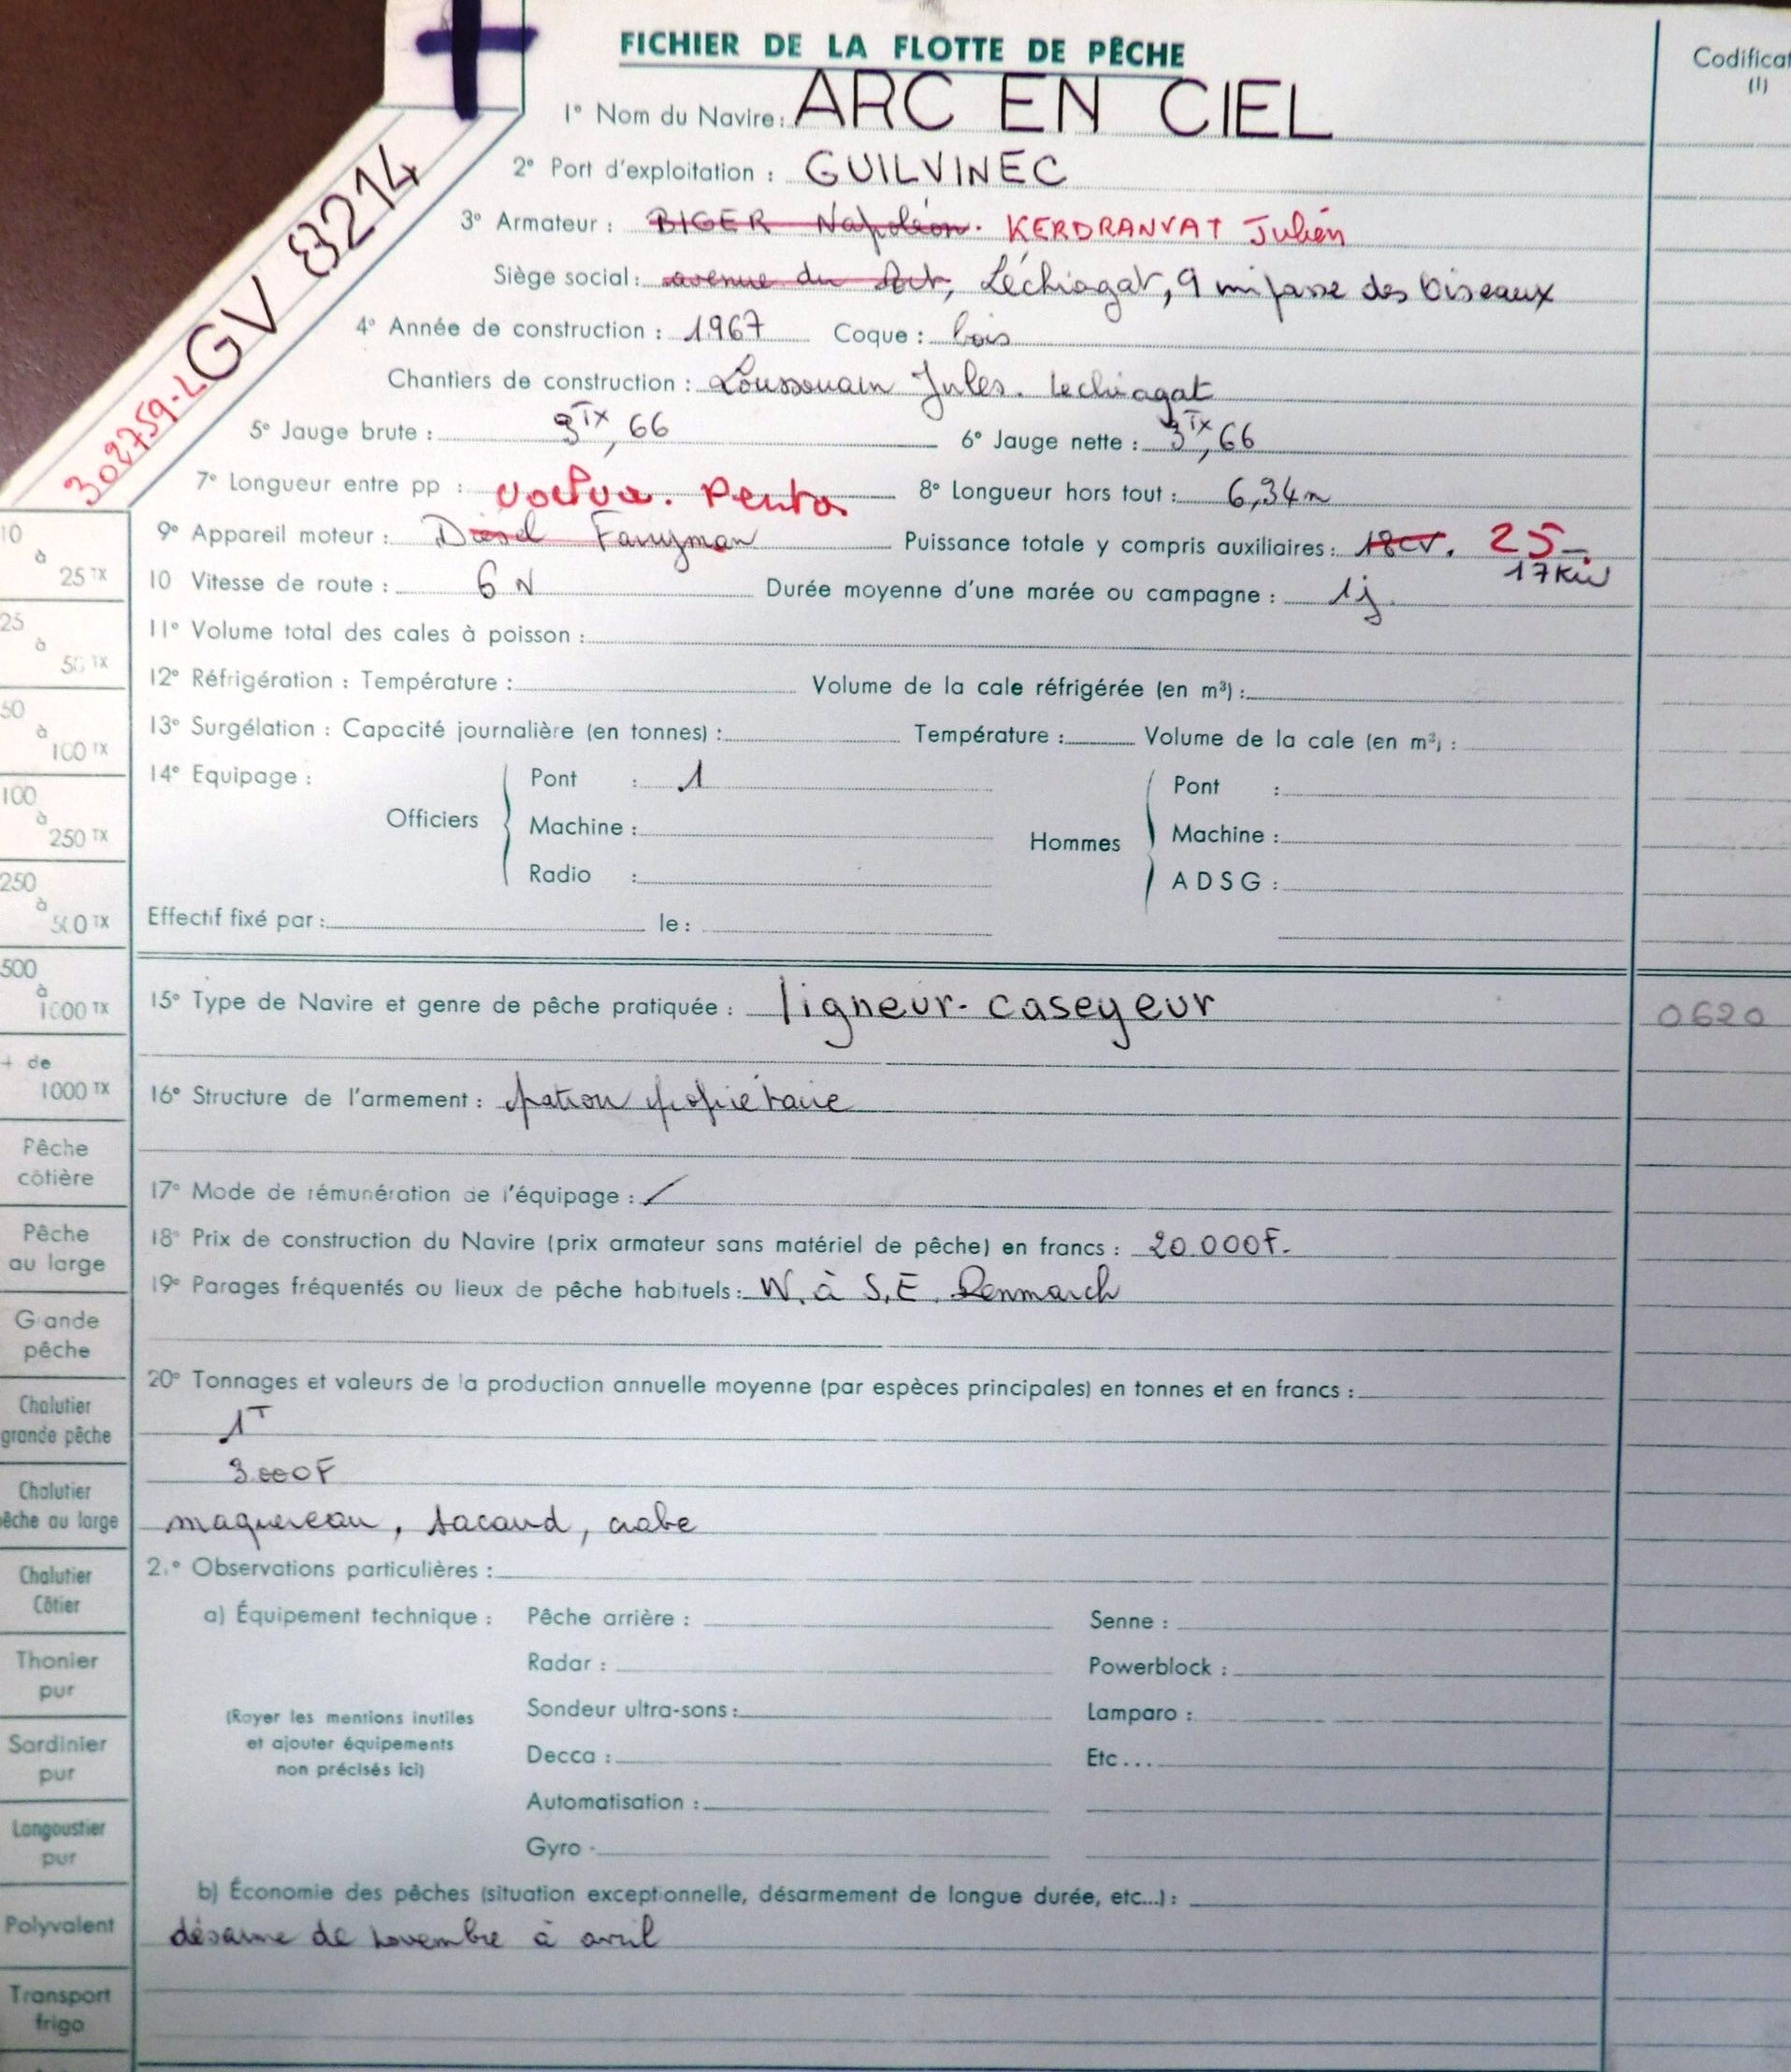 FICHIER DE LA FLOTTE DE PÊCHE
Codificat
(1)
1° Nom du Navire : ARC EN CIEL
2° Port d'exploitation : GUILVINEC
GV 8214
302759-L
3° Armateur : BIGER Napoléon. KERDRANVAT Julien
Siège social : avenue du Port, Léchiagat, 9 impasse des Oiseaux
4° Année de construction : 1967 Coque : bois
Chantiers de construction : Loussouarn Jules. Lechiagat
5° Jauge brute : 3 Tx, 66 6° Jauge nette : 3 Tx, 66
7° Longueur entre pp : 8° Longueur hors tout : 6,34m
Volvo. Penta
9° Appareil moteur : Diesel Farryman Puissance totale y compris auxiliaires : 18cv. 25
17Kw
10 Vitesse de route : 6 N Durée moyenne d'une marée ou campagne : 1j
11° Volume total des cales à poisson :
12° Réfrigération : Température : Volume de la cale réfrigérée (en m³) :
13° Surgélation : Capacité journalière (en tonnes) : Température : Volume de la cale (en m³) :
14° Equipage :
Officiers
Pont : 1
Machine :
Radio :
Hommes
Pont :
Machine :
A D S G :
Effectif fixé par : le :
15° Type de Navire et genre de pêche pratiquée : ligneur-caseyeur 0620
16° Structure de l'armement : patron propriétaire
17° Mode de rémunération de l'équipage : /
18° Prix de construction du Navire (prix armateur sans matériel de pêche) en francs : 20.000F.
19° Parages fréquentés ou lieux de pêche habituels : W. à S.E. Penmarch
20° Tonnages et valeurs de la production annuelle moyenne (par espèces principales) en tonnes et en francs :
1T
3.000F
maquereau, tacaud, crabe
2.° Observations particulières :
a) Équipement technique :
(Rayer les mentions inutiles
et ajouter équipements
non précisés ici)
Pêche arrière : Senne :
Radar : Powerblock :
Sondeur ultra-sons : Lamparo :
Decca : Etc...
Automatisation :
Gyro
b) Économie des pêches (situation exceptionnelle, désarmement de longue durée, etc...) :
désarme de novembre à avril
10
à
25 TX
25
à
50 TX
50
à
100 TX
100
à
250 TX
250
à
500 TX
500
à
1000 TX
+ de
1000 TX
Pêche
côtière
Pêche
au large
Grande
pêche
Chalutier
grande pêche
Chalutier
êche au large
Chalutier
Côtier
Thonier
pur
Sardinier
pur
Langoustier
pur
Polyvalent
Transport
frigo